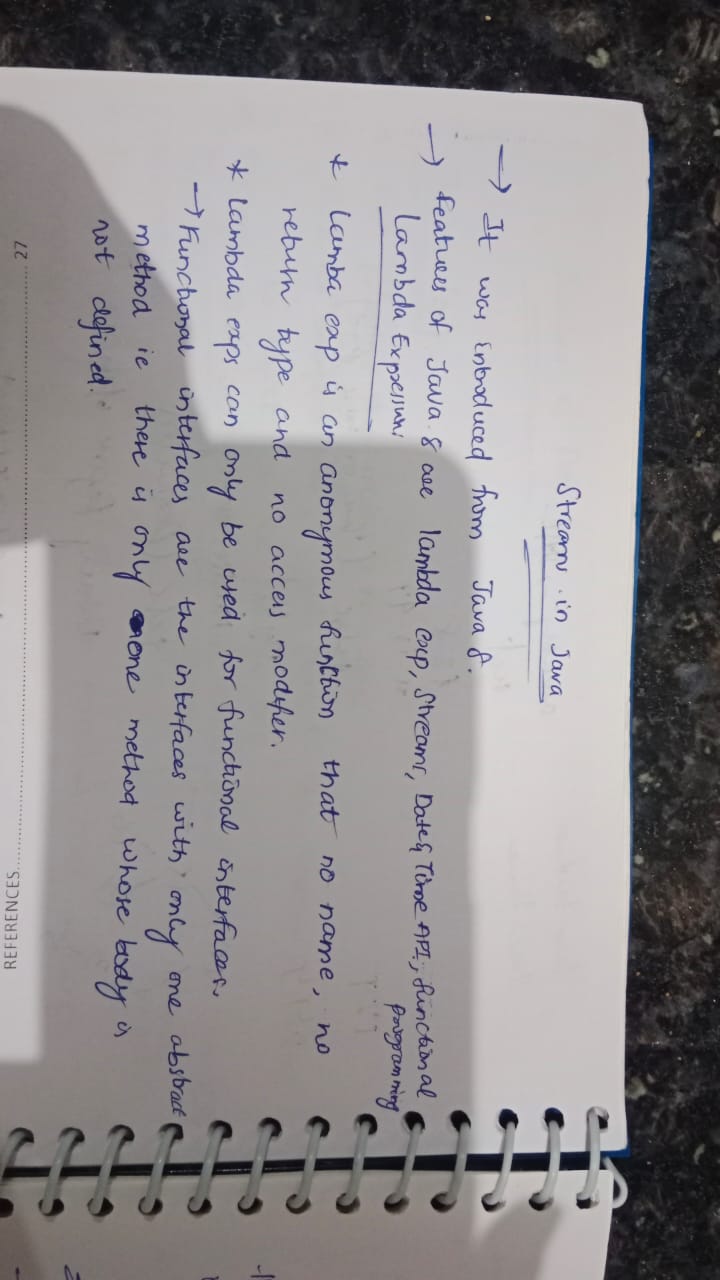 Streams in Java
→ It was introduced from Java 8.
→ Features of Java 8 are lambda exp, Streams, Date & Time API, functional
programming
Lambda Expression:
* Lamba exp is an anonymous function that no name, no
return type and no access modifier.
* Lambda exps can only be used for functional interfaces.
→ Functional interfaces are the interfaces with only one abstract
method ie there is only one method whose body is
not defined.
27
REFERENCES